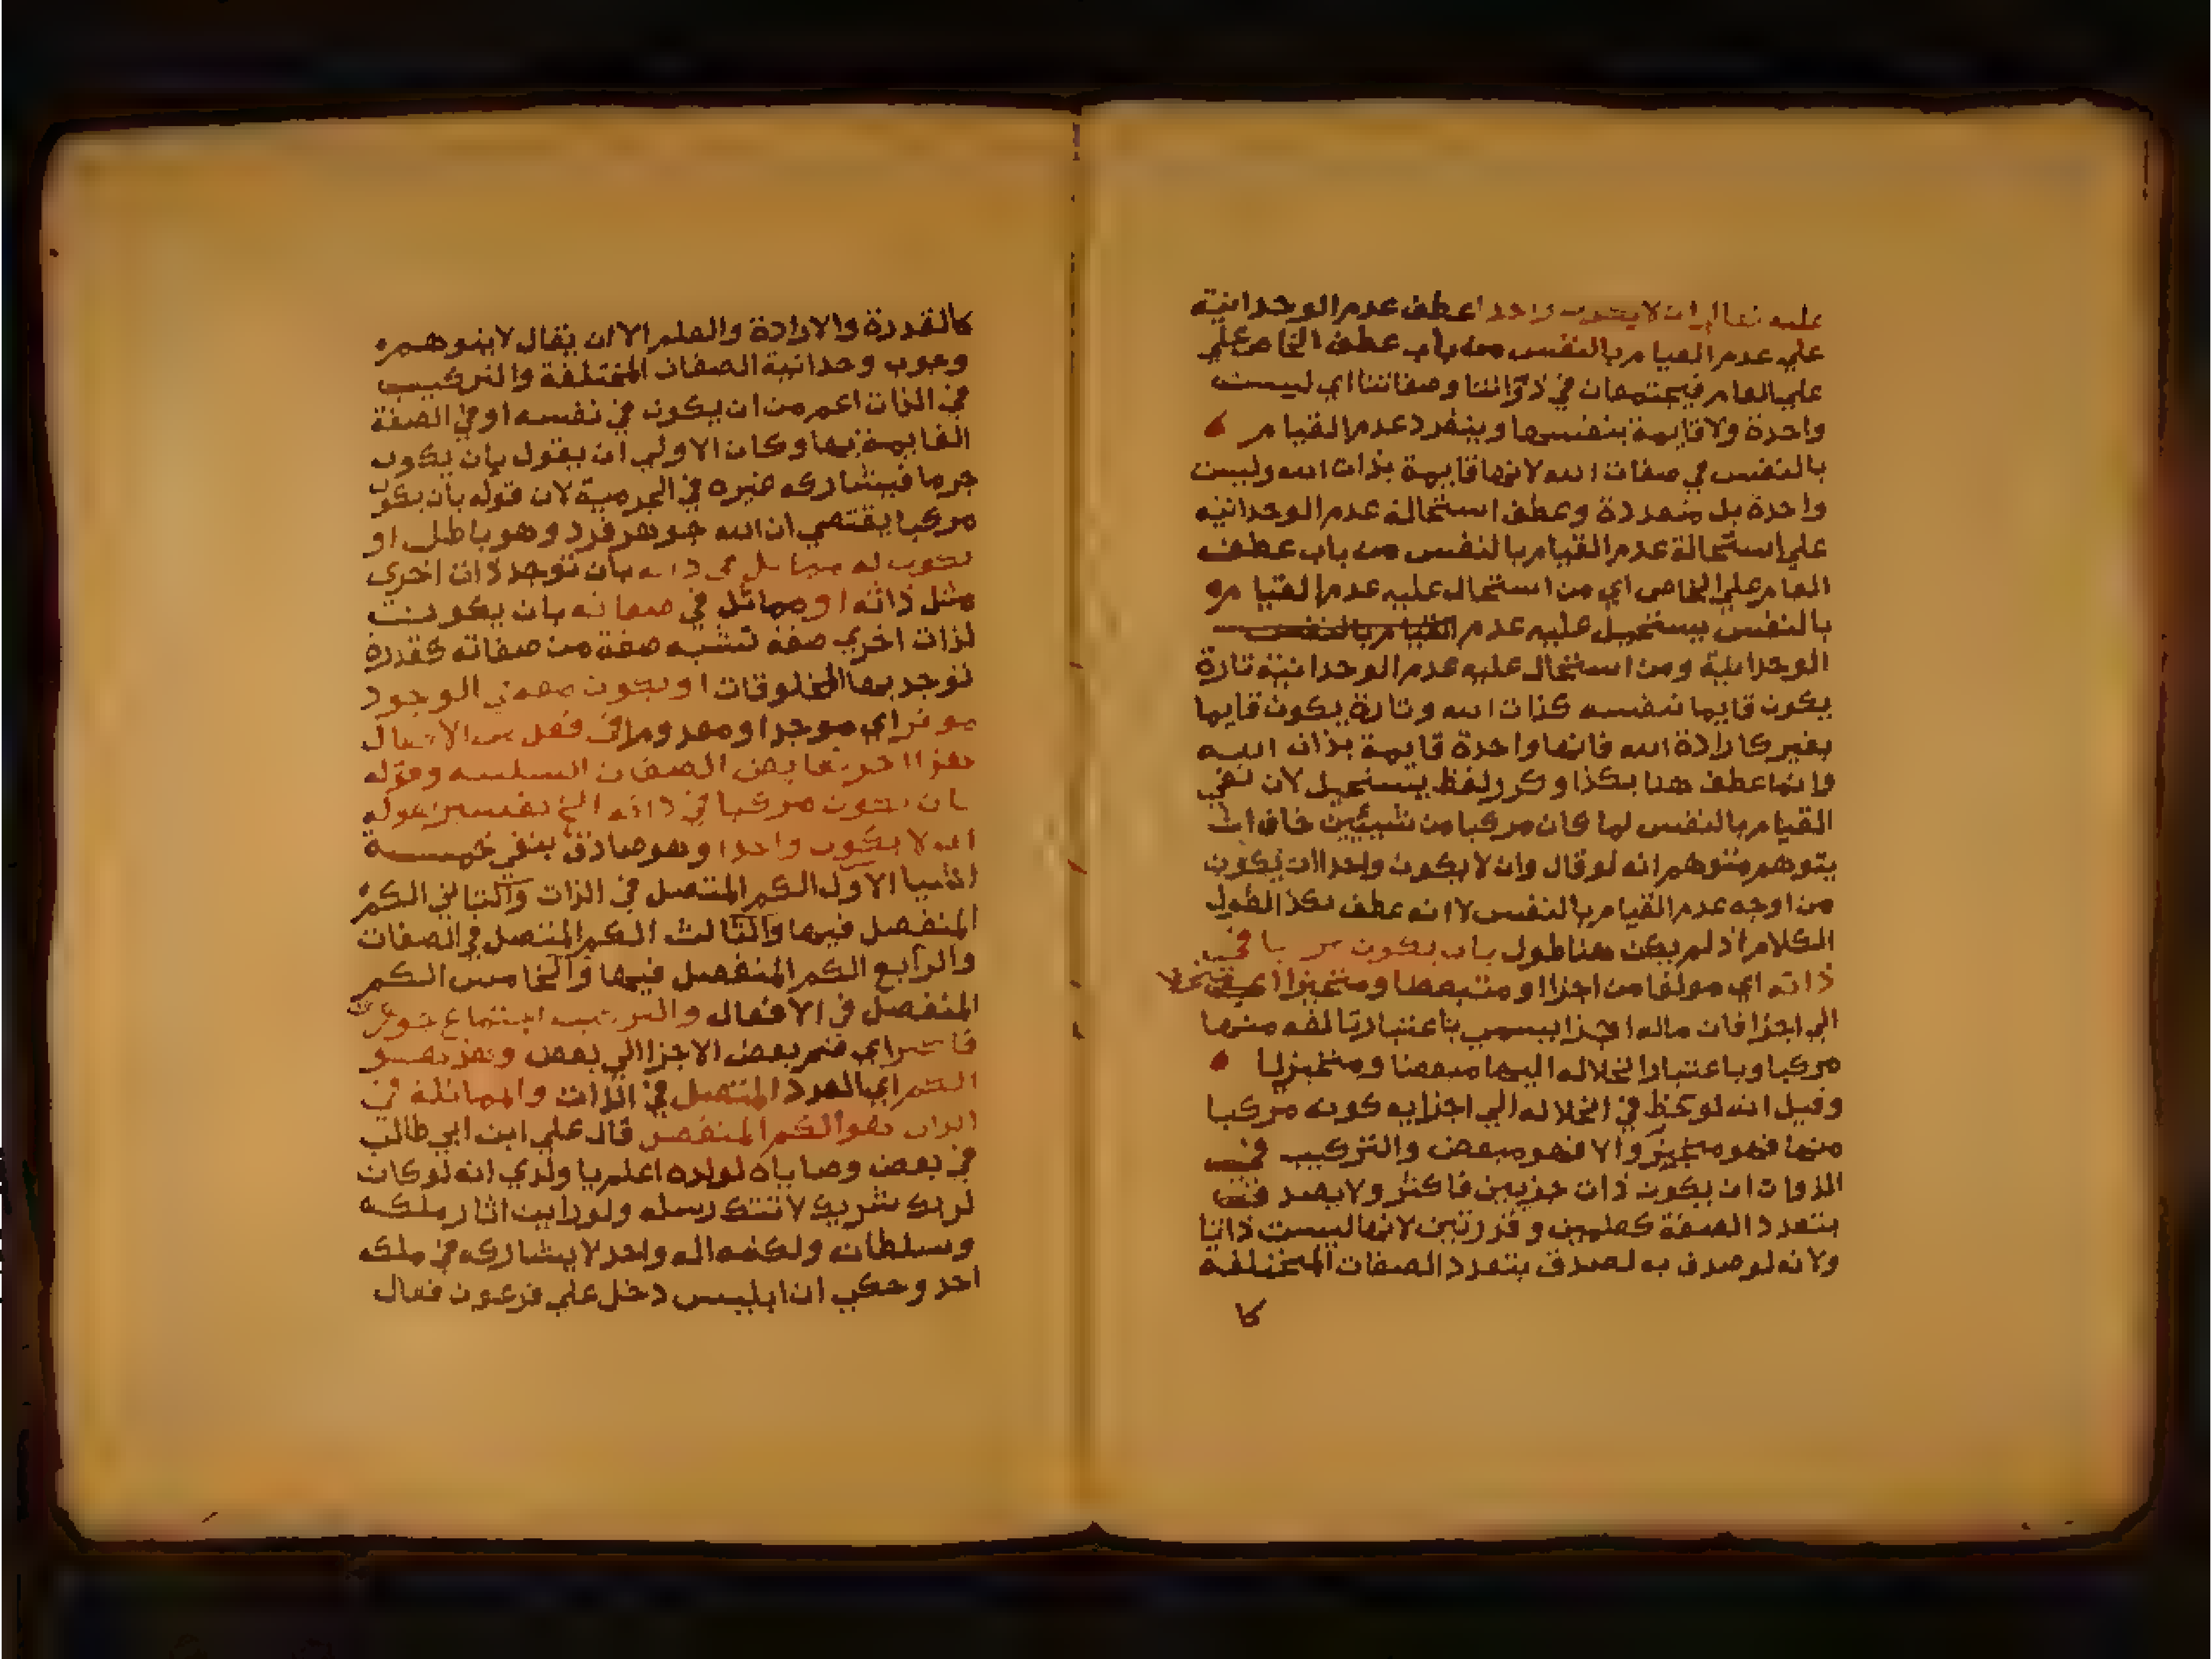 عليه تعالى ان لا يكون واحدا عطف عدم الوحدانية
علي عدم القيام بالنفس من باب عطف الخاص علي
علي العام فيجتمعان في ذواتنا وصفاتنا اي ليست
واحدة ولا قايمة بنفسها وينفرد عدم القيام
بالنفس في صفات الله لانها قايمة بذات الله وليست
واحدة بل متعددة وعطف استحالة عدم الوحدانيه
علي استحالة عدم القيام بالنفس من باب عطف
العام علي الخاص اي من استحال عليه عدم القيام و
بالنفس يستحيل عليه عدم القيام بالنفس
الوحدانية ومن استحال عليه عدم الوحدانية تارة
يكون قايما بنفسه كذات الله وتارة يكون قايما
بغير كارادة الله فانها واحدة قايمة بذات الله
وانما عطف هنا بكذا وكرر لفظ يستحيل لان نفي
القيام بالنفس لما كان مركبا من شيئين خاف ان
يتوهم متوهم انه لو قال وان لا يكون واحدا ان يكون
من اوجه عدم القيام بالنفس لا انه عطف بكذا لطول
الكلام اذ لم يكن هنا طول بان يكون مركبا في
ذاته اي مولفا من اجزا او متبعضا ومتحيزا اي
الي اجزا فان ماله اجزا يسمي باعتبار تالفه منها
مركبا وباعتبار انحلاله اليها مبعضا ومتحيزا
وقيل انه لوحظ في انحلاله الي اجزايه كونه مركبا
منها فهو متحيز والا فهو مبعض والتركيب في
الذوات ان يكون ذات جزيين فاكثر ولا يصدق
بتعدد الصفة كعلمين وقدرتين لانها ليست ذاتا
ولانه لو صدق به لصدق بتعدد الصفات المختلفة
كا
كالقدرة والارادة والعلم الا ان يقال لا يتوهم
وجوب وحدانية الصفات المختلفة والتركيب
في الذات اعم من ان يكون في نفسه او في الصفة
القايمة بها وكان الاولي ان يقول بان يكون
جرما فيشاركه غيره في الجرمية لان قوله بان يكون
مركبا يقتضي ان الله جوهر فرد وهو باطل او
يكون له مماثل في ذاته بان توجد ذات اخري
مثل ذاته او مماثل في صفاته بان يكون
لذات اخري صفة تشبه صفة من صفاته كقدرة
توجد بها المخلوقات او يكون معه في الوجود
موثر اي موجدا ومعدوما في فعل من الافعال
هذا اخر نقايض الصفات السلبيه وقوله
بان يكون مركبا في ذاته الخ تفسير لقوله
ان لا يكون واحدا وهو صادق بنفي خمسة
اشيا الاول الكم المتصل في الذات والثاني الكم
المنفصل فيها والثالث الكم المتصل في الصفات
والرابع الكم المنفصل فيها والخامس الكم
المنفصل في الافعال والتركيب اجتماع جوهرين
فاكثر اي ضم بعض الاجزا الي بعض وهذا هو
الكم اي العدد المتصل في الذات والمماثلة في
الذات هو الكم المنفصل قال علي ابن ابي طالب
في بعض وصاياه لولده اعلم يا ولدي انه لو كان
لربك شريك لاتتك رسله ولو رايت اثار ملكه
وسلطانه ولكنه اله واحد لا يشاركه في ملكه
احد وحكي ان ابليس دخل علي فرعون فقال